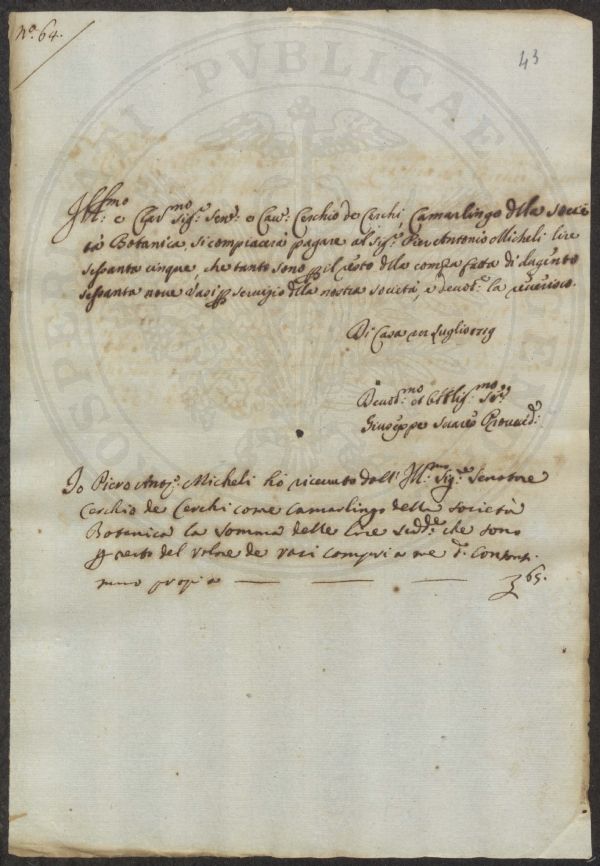 Nº. 64.
43
Ill.mo e Clar.mo Sig.r Sen.re e Cav.r Cerchio de Cerchi Camarlingo della socie
tà Botanica, si compiacerà pagare al Sig.r Pier Antonio Micheli lire
sessanta cinque, che tanto sono p il resto della compra fatta di dugento
sessanta nove Vasi p servizio della nostra società, e devot.e la riverisco.
Di Casa Luglio 1719
Devot.mo et Obblig.mo Ser.e
Giuseppe Suares Provved.e
Io Piero Ant.o Micheli hò ricevuto dall' Ill.mo Sig.re Senatore
Cerchio de Cerchi come Camarlingo della società
Botanica la somma delle lire sudd.e che sono
p resto del valore de vasi compri a me d.
mano propia
65.